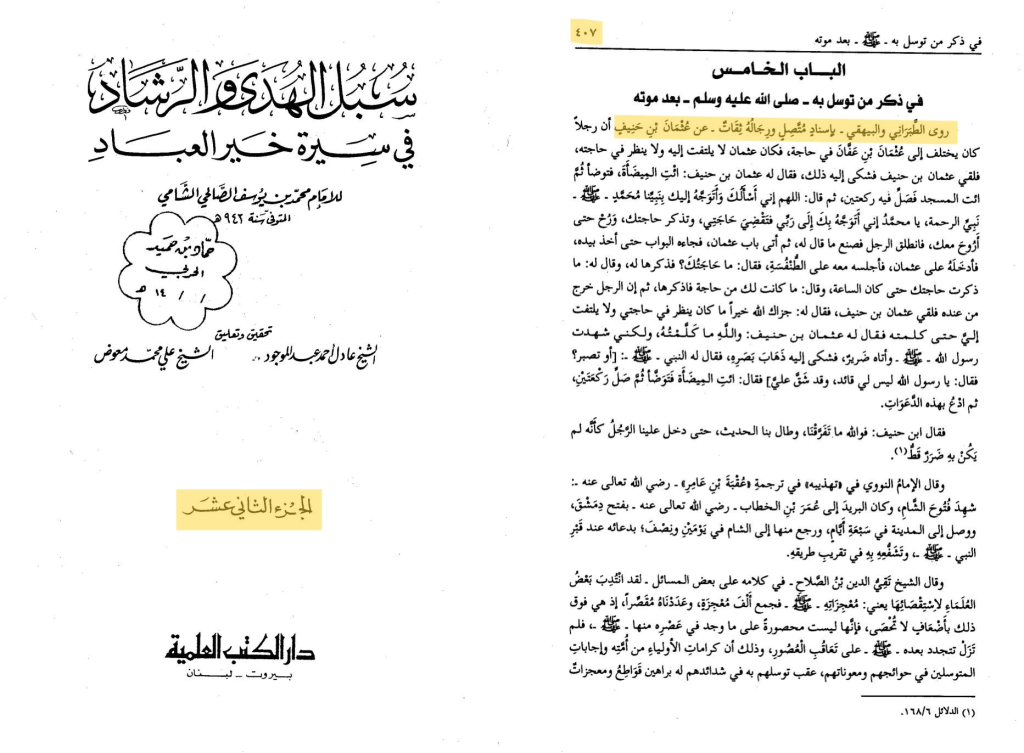 سُبُل الهُدى والرّشاد
في سيرة خير العباد
للإمام محمد بن يوسف الصالحي الشامي
المتوفى سنة ٩٤٢ هـ
حماد بن حميد
الحربي
/ / ١٤ هـ
تحقيق وتعليق
الشيخ عادل أحمد عبد الموجود
الشيخ علي محمد معوض
الجزء الثاني عشر
دار الكتب العلمية
بيروت ـ لبنان
في ذكر من توسل به ـ ﷺ ـ بعد موته
٤٠٧
الباب الخامس
في ذكر من توسل به ـ صلى الله عليه وسلم ـ بعد موته
روى الطَّبَرَاني والبيهقي ـ بإسنادٍ مُتَّصِلٍ ورِجَالُهُ ثِقَاتٌ ـ عن عُثْمَانَ بْنِ حَنِيفٍ أن رجلاً
كان يختلف إلى عُثْمَانَ بْنِ عَفَّانَ في حاجة، فكان عثمان لا يلتفت إليه ولا ينظر في حاجته،
فلقي عثمان بن حنيف فشكى إليه ذلك، فقال له عثمان بن حنيف: ائْتِ المِيضَأَةَ، فتوضأ ثُمَّ
ائت المسجد فَصَلِّ فيه ركعتين، ثم قال: اللهم إني أَسْأَلُكَ وَأَتَوَجَّهُ إليك بِنَبِيِّنا مُحَمَّدٍ ـ ﷺ ـ
نَبِيِّ الرحمة، يا محمَّدُ إني أَتَوَجَّهُ بِكَ إِلَى رَبِّي فَتَقْضِيَ حَاجَتِي، وتذكر حاجتك، وَرُحْ حتى
أَرُوحَ معك، فانطلق الرجل فصنع ما قال له، ثم أتى باب عثمان، فجاءه البواب حتى أخذ بيده،
فأَدخَلَهُ على عثمان، فأجلسه معه على الطُّنْفُسَةِ، فقال: ما حَاجَتُكَ؟ فذكرها له، وقال له: ما
ذكرت حاجتك حتى كان الساعة، وقال: ما كانت لك من حاجة فاذكرها، ثم إن الرجل خرج
من عنده فلقي عثمان بن حنيف، فقال له: جزاك الله خيراً ما كان ينظر في حاجتي ولا يلتفت
إليَّ حتى كلمته فقال له عثمان بن حنيف: واللَّهِ ما كَلَّمْتُهُ، ولكني شهدت
رسول الله ـ ﷺ ـ وأتاه ضَرِيرٌ، فشكى إليه ذَهَابَ بَصَرِهِ، فقال له النبي ـ ﷺ ـ: [أو تصبر؟
فقال: يا رسول الله ليس لي قائد، وقد شَقَّ عليَّ] فقال: ائت المِيضَأَة فَتَوَضَّأْ ثُمَّ صَلِّ رَكْعَتَيْنِ،
ثم ادْعُ بهذه الدَّعَوَاتِ.
فقال ابن حنيف: فوالله ما تَفَرَّقْنَا، وطال بنا الحديث، حتى دخل علينا الرَّجُلُ كأَنَّه لم
يَكُنْ بِهِ ضَرَرٌ قَطُّ(١).
وقال الإمامُ النووي في «تهذيبه» في ترجمةِ «عُقْبَةَ بْنِ عَامِرٍ» ـ رضي الله تعالى عنه ـ:
شهِدَ فُتُوحَ الشَّامِ، وكان البريدَ إلى عُمَرَ بْنِ الخطاب ـ رضي الله تعالى عنه ـ بفتح دِمَشْقَ،
ووصل إلى المدينة في سَبْعَةِ أَيَّامٍ، ورجع منها إلى الشام في يَوْمَيْنِ ونِصْفٍ؛ بدعائه عند قَبْرِ
النبي ـ ﷺ ـ، وتَشَفُّعِهِ بِهِ في تقريبِ طريقهِ.
وقال الشيخ تَقِيُّ الدين بْنُ الصَّلاحِ ـ في كلامه على بعض المسائل ـ لقد انْتُدِبَ بَعْضُ
العُلَمَاءِ لاِسْتِقْصَائِهَا يعني: مُعْجِزَاتِهِ ـ ﷺ ـ فجمع أَلْفَ مُعْجِزَةٍ، وعَدَدْنَاهُ مُقَصِّراً، إذ هي فوق
ذلك بأَضْعَافٍ لا تُحْصَى، فإنَّها ليست محصورةً على ما وجد في عَصْرِه منها ـ ﷺ ـ، فلم
تَزَلْ تتجدد بعده ـ ﷺ ـ على تَعَاقُبِ العُصُورِ، وذلك أن كراماتِ الأولياءِ من أُمَّتِه وإجاباتِ
المتوسلين في حوائجهم ومعوناتهم، عقب توسلهم به في شدائدهم له براهين قَوَاطِعُ ومعجزاتٌ
(١) الدلائل ١٦٨/٦.